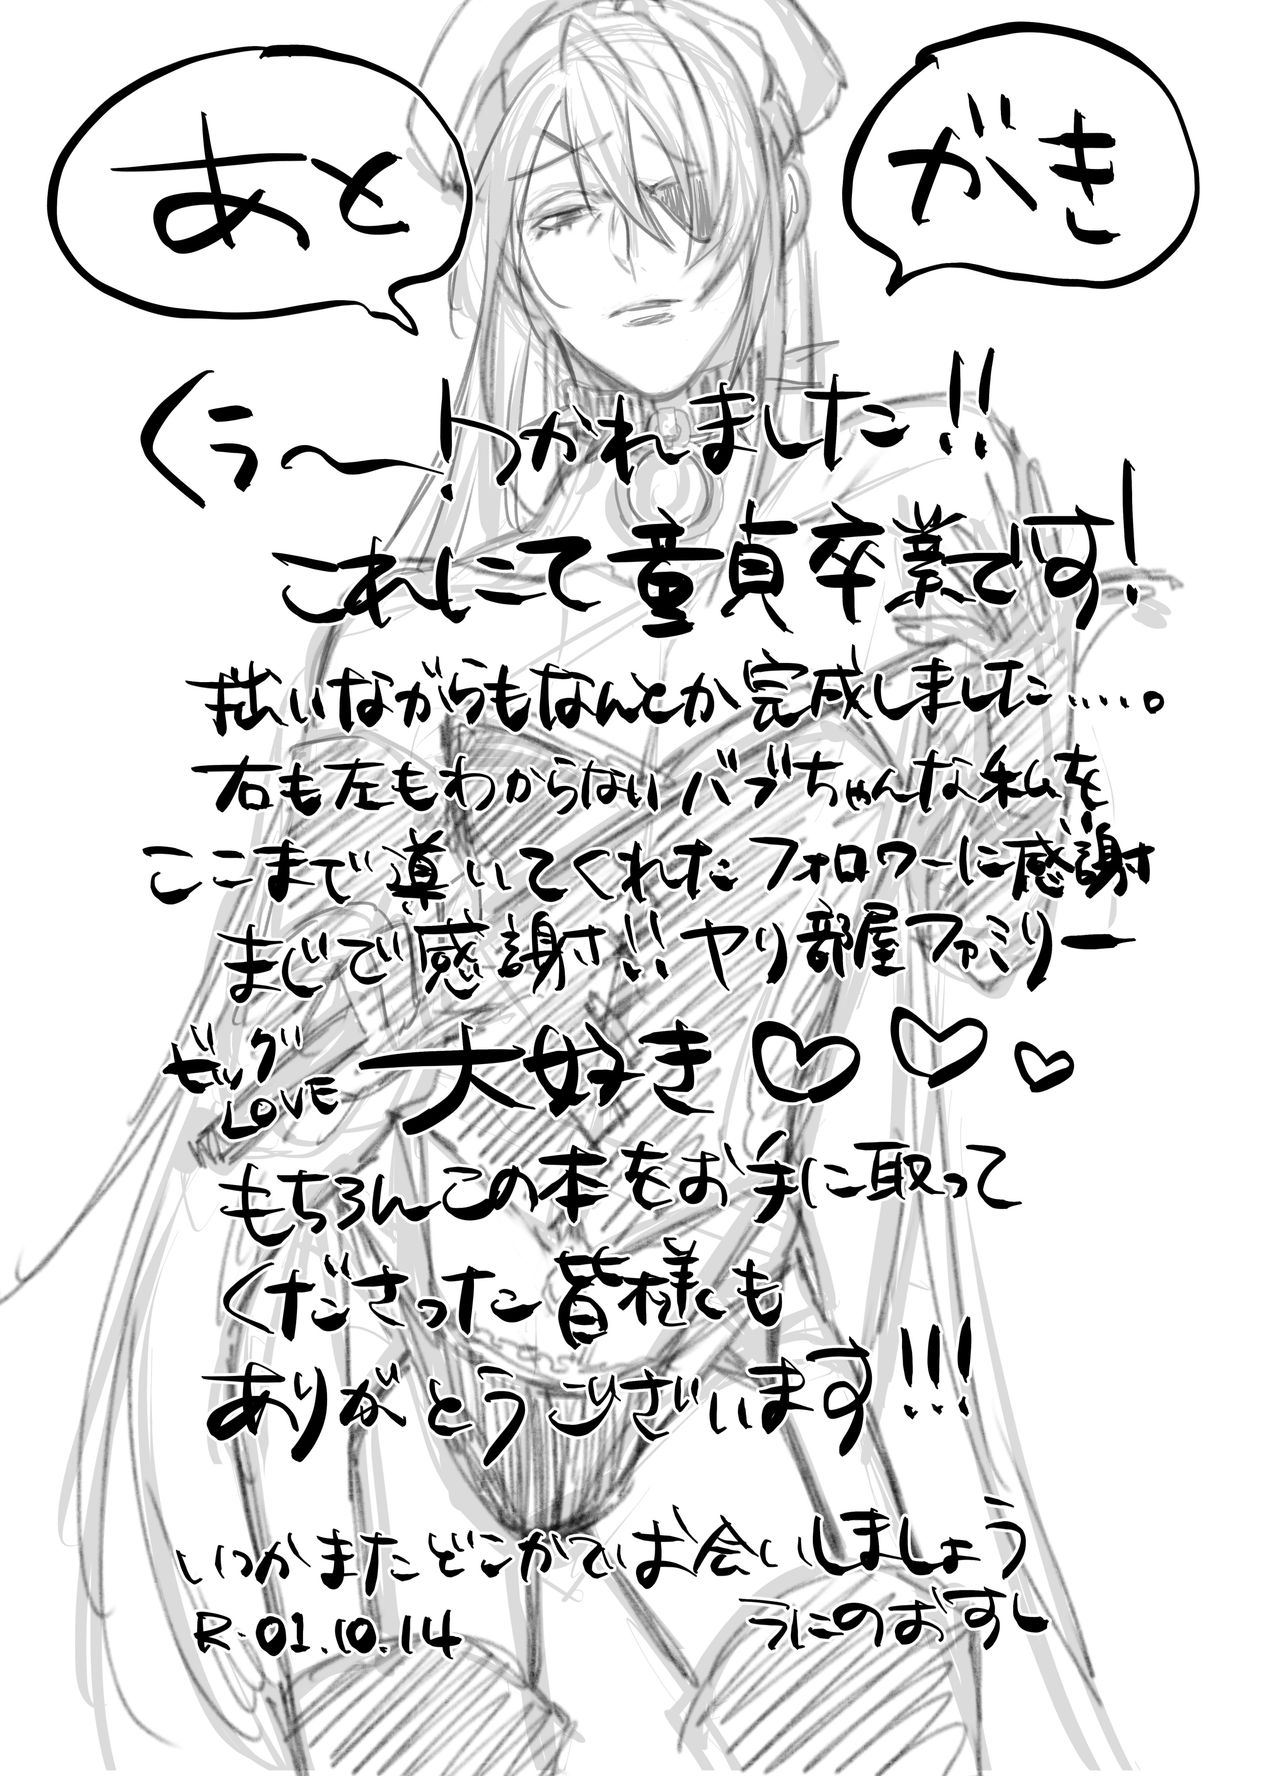 あと
がき
くぅ〜!つかれました!!
これにて童貞卒業です!
拙いながらもなんとか完成しました……。
右も左もわからないバブちゃんな私を
ここまで導いてくれたフォロワーに感謝
まじで感謝!!ヤリ部屋ファミリー
ビッグLOVE 大好き♡♡♡
もちろんこの本をお手に取って
くださった皆様も
ありがとうございます!!!
いつかまたどこかでお会いしましょう
R.01.10.14 うにのおすし